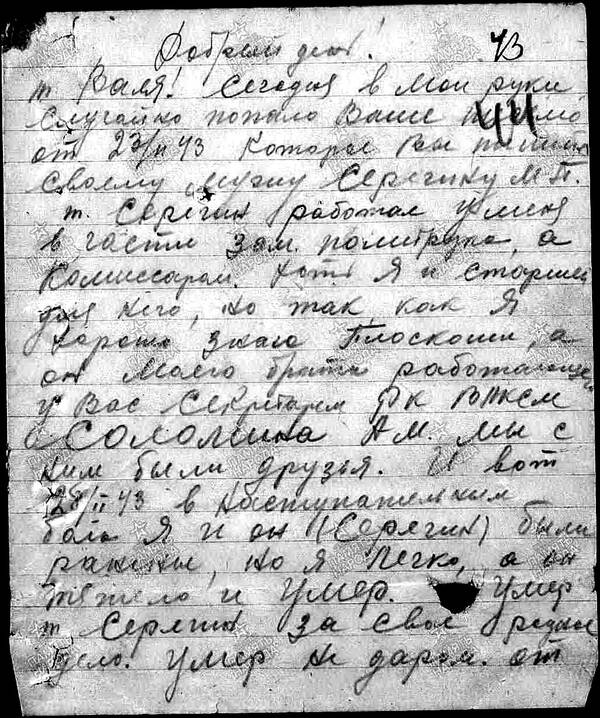 Добрый день! 43
т Валя! Сегодня в мои руки
случайно попало Ваше письмо 44
от 23/II 43 которое Вы
своему мужу Серегину М П.
т. Серегин работал у меня
в части зам. политрука, а
комиссаром. Хотя я и старше
для него, но так как я
хорошо знаю Плоскоши, а
он моего брата работающего
у Вас Секретарем РК ВЛКСМ
Соломина А М. мы с
ним были друзья. И вот
28/II 43 в наступательным
бою я и он (Серегин) были
ранены, но я легко, а он
тяжело и умер. Умер
т Серегин за свое родное
дело. Умер не даром. от